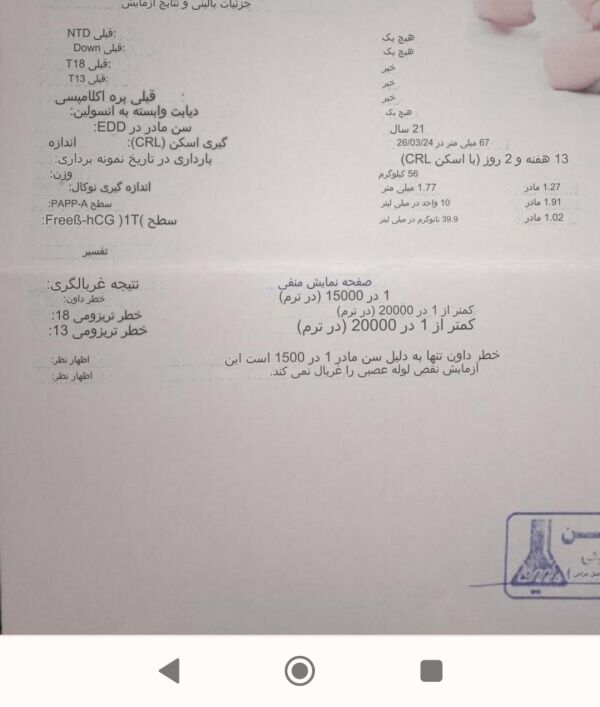 جزئیات بالینی و نتایج آزمایش
قبلی NTD: هیچ یک
قبلی Down: هیچ یک
قبلی T18: خیر
قبلی T13: خیر
قبلی پره اکلامپسی خیر
دیابت وابسته به انسولین: هیچ یک
سن مادر در EDD: 21 سال
اندازه گیری اسکن (CRL): 67 میلی متر در 26/03/24
بارداری در تاریخ نمونه برداری: 13 هفته و 2 روز (با اسکن CRL)
وزن: 56 کیلوگرم
اندازه گیری نوکال: 1.77 میلی متر 1.27 مادر
سطح PAPP-A: 10 واحد در میلی لیتر 1.91 مادر
سطح )1T( Freeß-hCG: 39.9 نانوگرم در میلی لیتر 1.02 مادر
تفسیر
نتیجه غربالگری: صفحه نمایش منفی
خطر داون: 1 در 15000 (در ترم)
خطر تریزومی 18: کمتر از 1 در 20000 (در ترم)
خطر تریزومی 13: کمتر از 1 در 20000 (در ترم)
اظهار نظر: خطر داون تنها به دلیل سن مادر 1 در 1500 است این
اظهار نظر: آزمایش نقص لوله عصبی را غربال نمی کند.